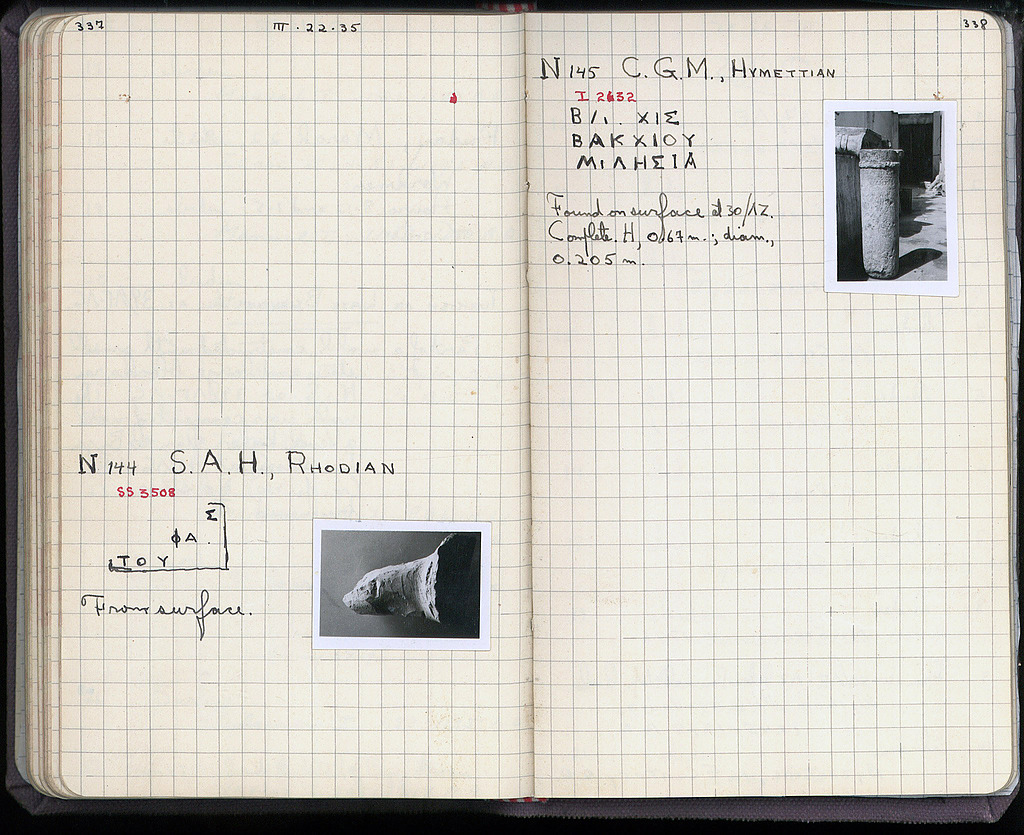 337
III · 22 · 35
N 144 S. A. H., RHODIAN
SS 3508
Σ
ΦΑ .
ΤΟΥ
From surface.
338
N 145 C. G. M., HYMETTIAN
I 2632
Β/ι. ΧΙΣ
ΒΑΚΧΙΟΥ
ΜΙΛΗΣΙΑ
Found on surface at 30/ΛΖ.
Complete. H, 0.67 m.; diam.,
0.205 m.